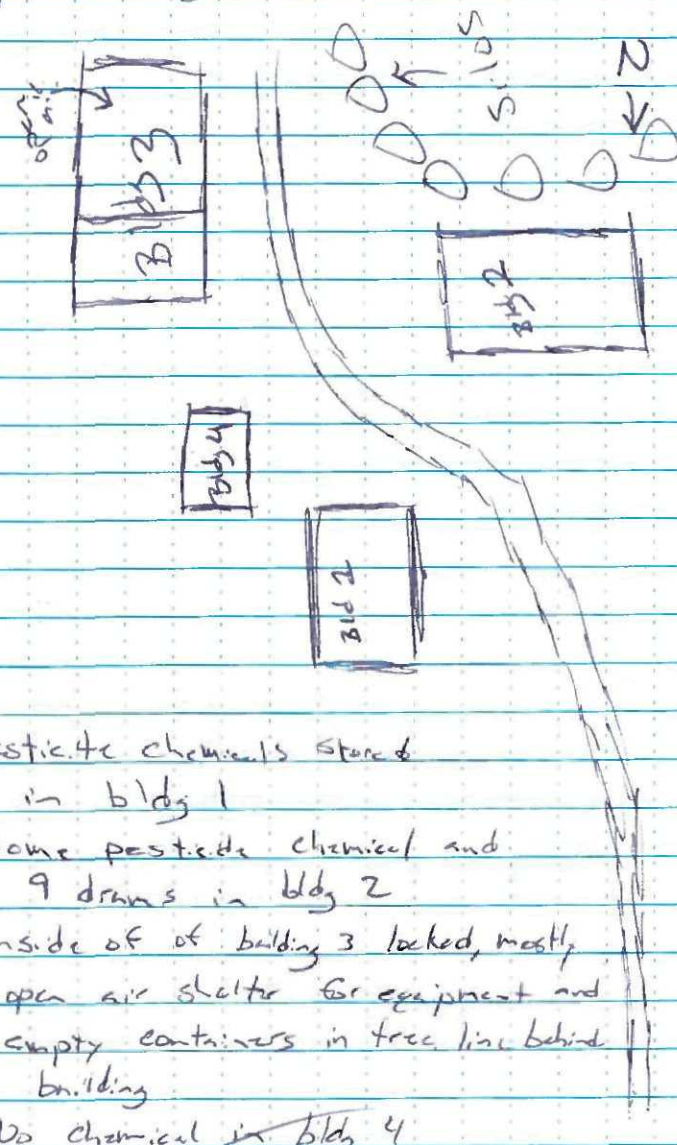 open
air
Bldg 3
Silos
N
Bldg 2
Bldg 4
Bld
esticite chemicals stored
in bldg 1
ome pesticide chemical and
9 drums in bldg 2
nside of of building 3 locked, mostly
open air shelter for equipment and
empty containers in tree line behind
building
No chemical in bldg 4